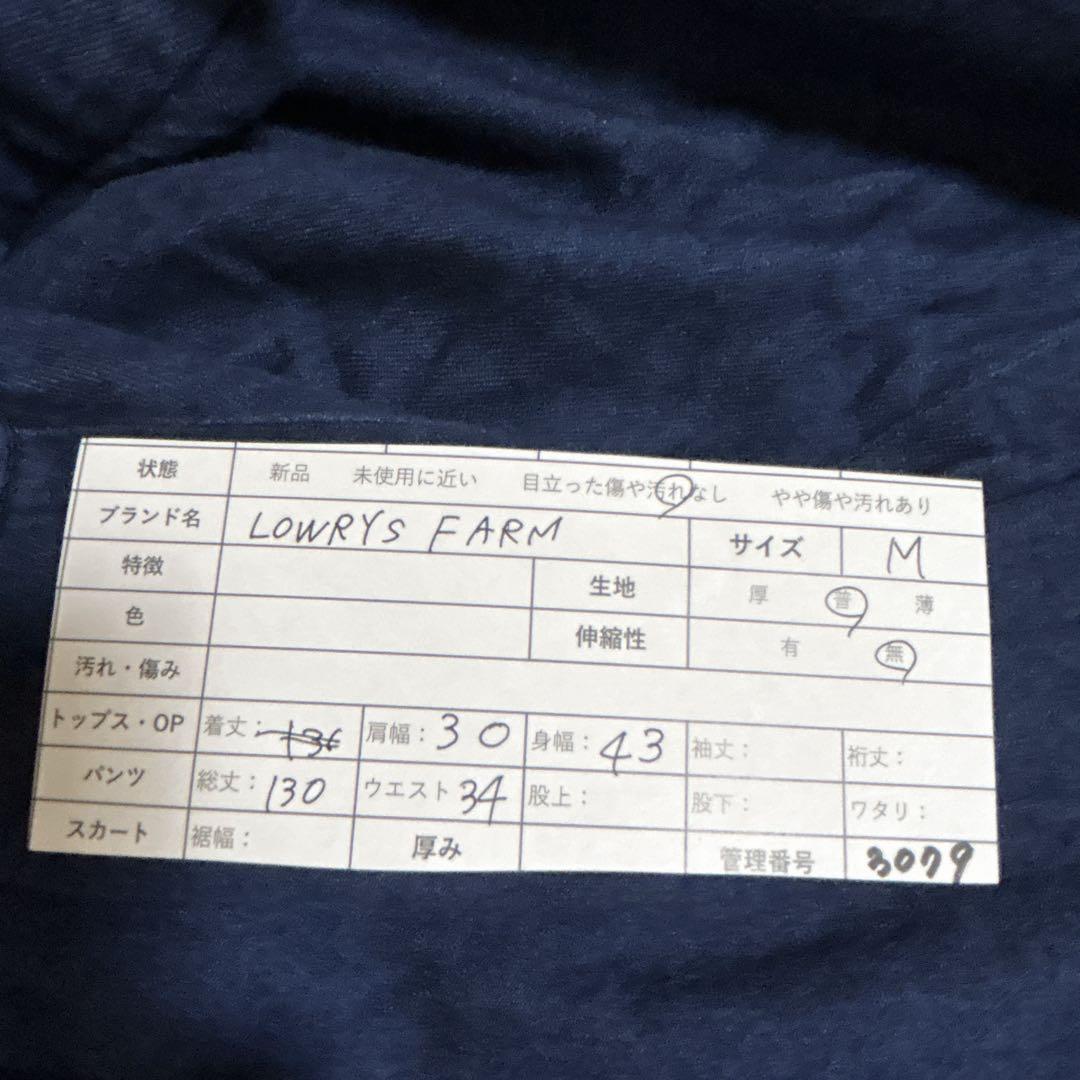 状態 新品 未使用に近い 目立った傷や汚れなし やや傷や汚れあり
ブランド名 LOWRYS FARM サイズ M
特徴 生地 厚 普 薄
色 伸縮性 有 無
汚れ・傷み
トップス・OP 着丈: 肩幅:30 身幅:43 袖丈: 裄丈:
パンツ 総丈:130 ウエスト 34 股上: 股下: ワタリ:
スカート 裾幅: 厚み 管理番号 3079